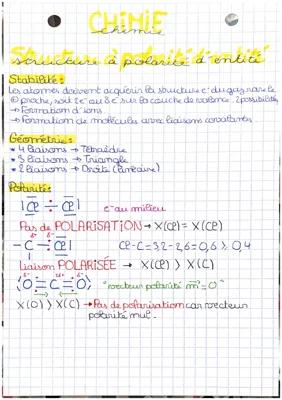 CHIMIE
chimie
Structure & polarité d'entité
Stabilité :
Les atomes doivent acquérir la structure e⁻ du gaz rare le
⊕ proche, soit 2e⁻ ou 8e⁻ sur la couche de valence. 2 possibilités
→ Formation d'ions
→ Formation de molécules avec liaisons covalentes
Géométrie :
* 4 liaisons → Tétraèdre
* 3 liaisons → Triangle
* 2 liaisons → Droite (linéaire)
Polarité :
|Cl ÷ Cl| e⁻ au milieu
Pas de POLARISATION → X(Cl) = X(Cl)
δ⁺ δ⁻
- C ÷ Cl| Cl-C = 3,2-2,6 = 0,6 ≥ 0,4
Liaison POLARISÉE → X(Cl) > X(C)
δ⁻ δ⁺ δ⁻
O = C = O "vecteur polarité m⃗ = 0"
X(O) > X(C) → Pas de polarisation car vecteur
polarité nul.